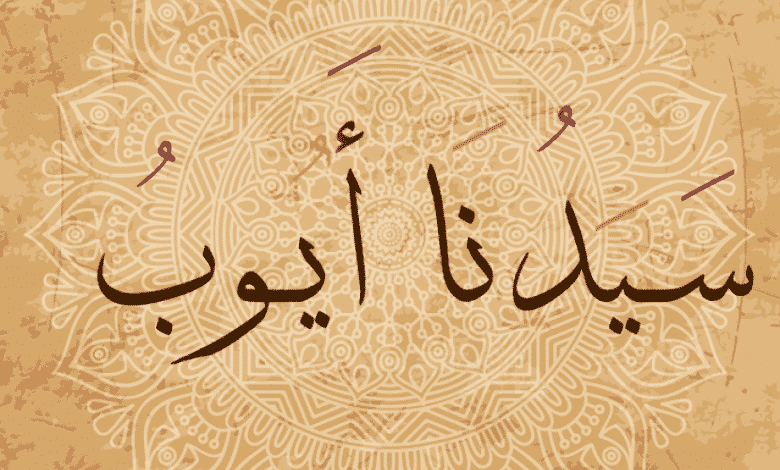 سَيدُنَا أَيوبُ